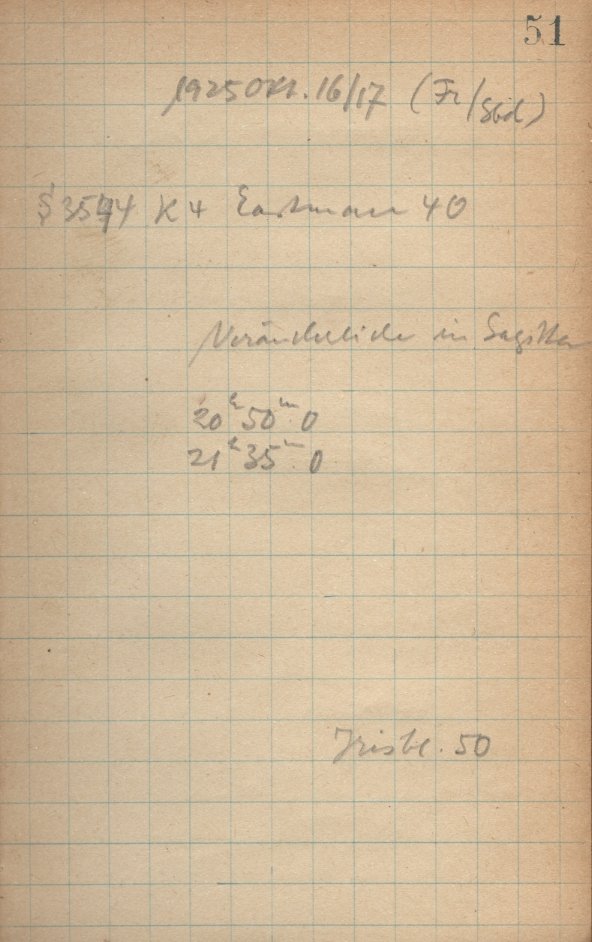 51
1925 Okt. 16/17 (Fr/Sbd)
S 3544 K4 Eastman 40
Veränderliche in Sagitta
20ʰ 50ᵐ 0
21ʰ 35ᵐ 0
Irisbl. 50